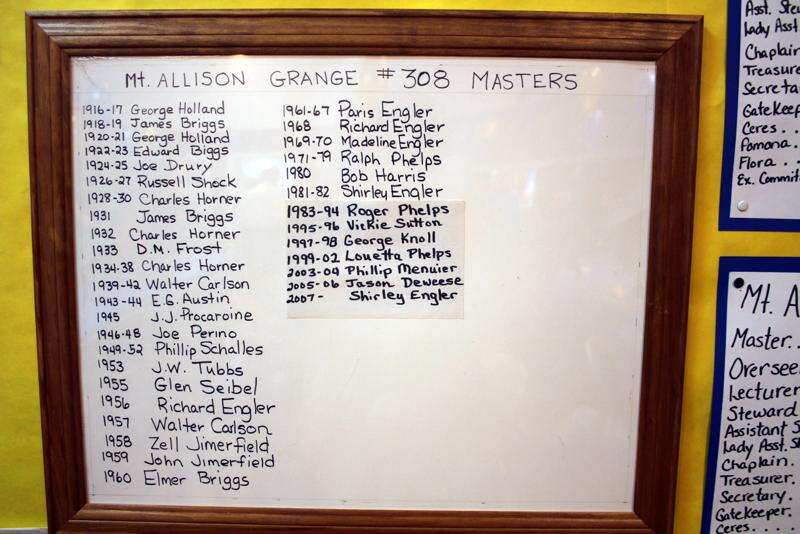 Mt. ALLISON GRANGE #308 MASTERS
1916-17 George Holland
1918-19 James Briggs
1920-21 George Holland
1922-23 Edward Biggs
1924-25 Joe Drury
1926-27 Russell Shock
1928-30 Charles Horner
1931 James Briggs
1932 Charles Horner
1933 D.M. Frost
1934-38 Charles Horner
1939-42 Walter Carlson
1943-44 E.G. Austin
1945 J.J. Procaroine
1946-48 Joe Perino
1949-52 Phillip Schalles
1953 J.W. Tubbs
1955 Glen Seibel
1956 Richard Engler
1957 Walter Carlson
1958 Zell Jimerfield
1959 John Jimerfield
1960 Elmer Briggs
1961-67 Paris Engler
1968 Richard Engler
1969-70 Madeline Engler
1971-79 Ralph Phelps
1980 Bob Harris
1981-82 Shirley Engler
1983-94 Roger Phelps
1995-96 Vickie Sutton
1997-98 George Knoll
1999-02 Louetta Phelps
2003-04 Phillip Menuier
2005-06 Jason Deweese
2007- Shirley Engler
Asst. Stew
Lady Asst
Chaplain
Treasure
Secreta
Gatekeep
Ceres...
Pomona.
Flora..
Ex. Commit
Mt. A
Master..
Oversee
Lecturer
Steward
Assistant S
Lady Asst. St
Chaplain.
Treasurer.
Secretary.
Gatekeeper.
Ceres....